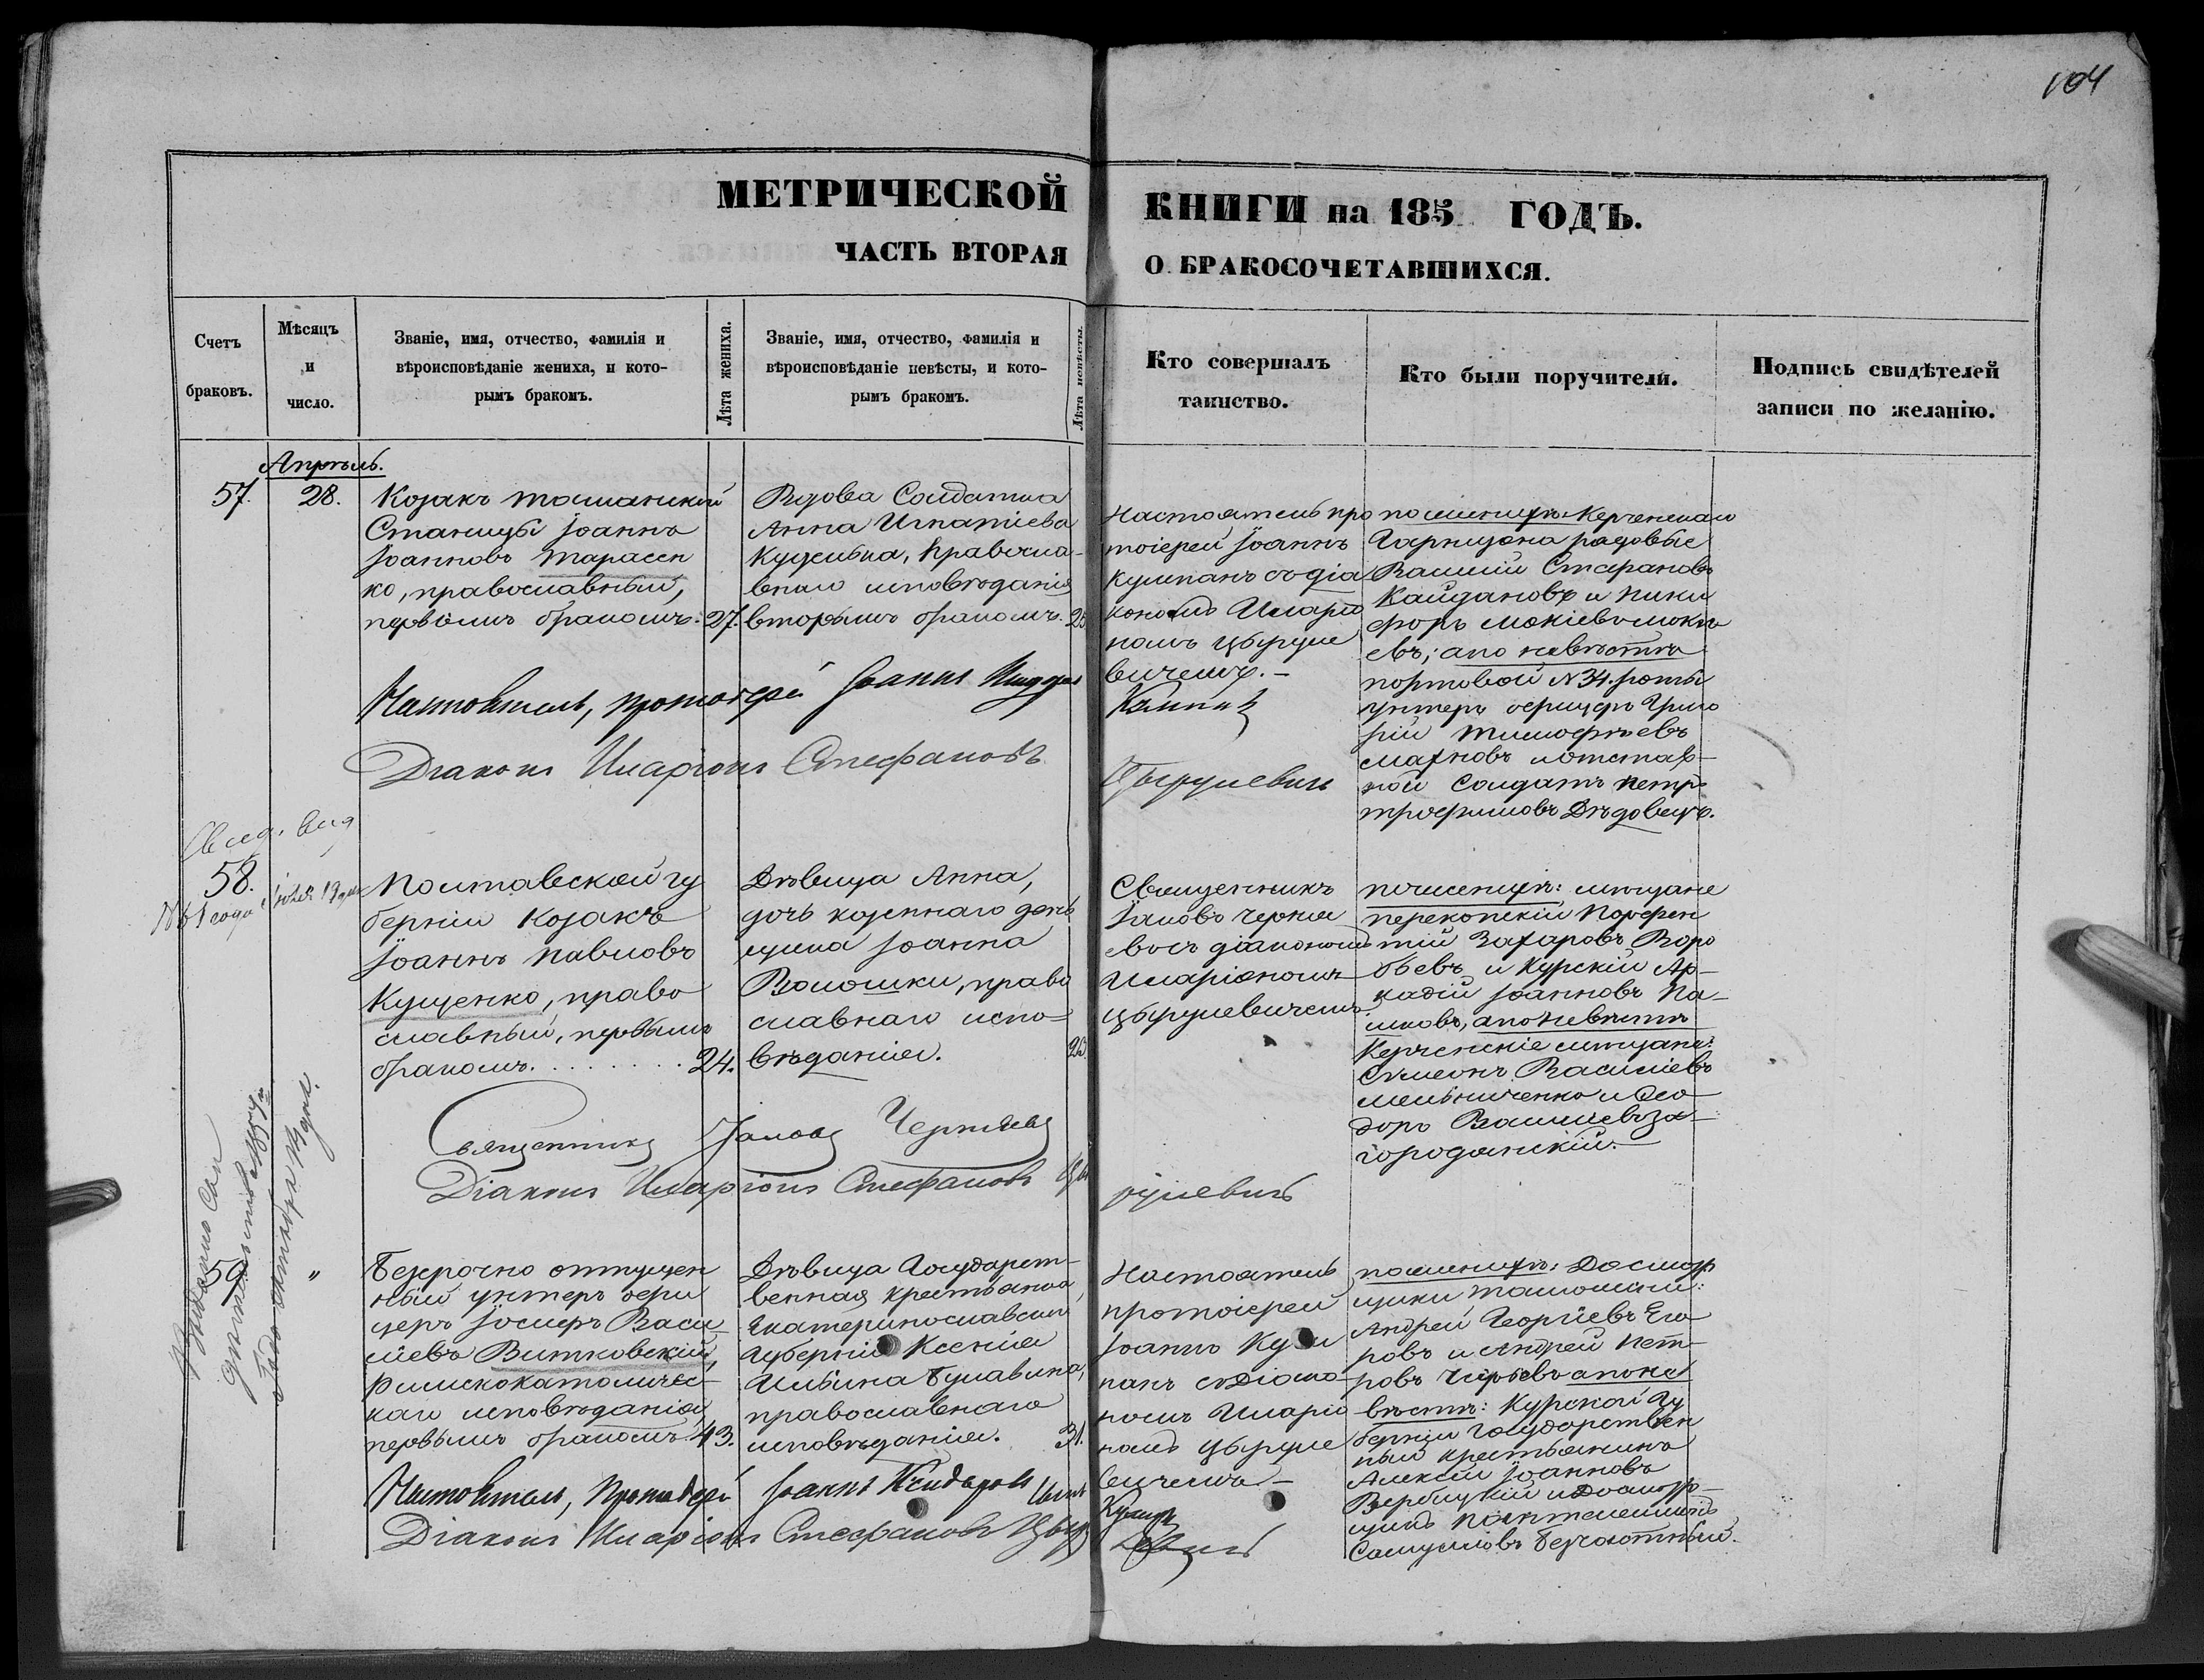 104
МЕТРИЧЕСКОЙ КНИГИ на 185 ГОДЪ.
ЧАСТЬ ВТОРАЯ О БРАКОСОЧЕТАВШИХСЯ.
Счетъ браковъ.
Мѣсяцъ и число.
Званіе, имя, отчество, фамилія и
вѣроисповѣданіе жениха, и кото-
рымъ бракомъ.
Лѣта жениха.
Званіе, имя, отчество, фамилія и
вѣроисповѣданіе невѣсты, и кото-
рымъ бракомъ.
Лѣта невѣсты.
Кто совершалъ
таинство.
Кто были поручители.
Подпись свидѣтелей
записи по желанію.
Апрѣль.
57.
28.
Козакъ
Станицы Іоаннъ
Іоанновъ Тарасен
ко, православный,
первымъ бракомъ.
27.
Вдова Солдатка
Анна Игнатіева
православ-
наго исповѣданія
вторымъ бракомъ.
25
Настоятель про
тоіерей Іоаннъ
Кушпанъ съ діа
кономъ Иларіо
номъ Цыруле
вичемъ.-
по женихѣ: Керченскаго
Гарнизона рядовые
Василій Стефановъ
Кайдановъ и Ники
форъ Мокіевъ Мокі
евъ; а по невѣстѣ
портовой № 31. роты
унтеръ офицеръ Григо
рій Тимофѣевъ
Махновъ и отстав-
ной Солдатъ Петръ
Трофимовъ Дѣдовецъ.
Настоятель, протоіерей Іоаннъ
Діаконъ Иларіонъ Стефановъ
Цырулевичъ
58.
Полтавской гу
берніи Козакъ
Іоаннъ Павловъ
Кущенко, право
славный, первымъ
бракомъ.
24.
Дѣвица Анна,
дочь казеннаго день
щика Іоанна
Волошки, право
славнаго испо-
вѣданія.
Священникъ
Іаковъ Черня
евъ съ діакономъ
Иларіономъ
Цырулевичемъ
по женихѣ: мѣщане
перекопскій Парфен
тій Захаровъ Воро
бьевъ и Курскій Ар-
кадій Іоанновъ Па-
а по невѣстѣ
Керченскіе мѣщане:
Сѵмеонъ Василіевъ
Мельниченко и Фео
доръ Василіевъ За-
городанскій.
Священникъ Іаковъ Черняевъ
Діаконъ Иларіонъ Стефановъ Цы
рулевичъ
59.
"
Безсрочно отпущен
ный унтеръ офи
церъ Іосифъ Васи
ліевъ Витковскій,
Римскокатоличес-
каго исповѣданія
первымъ бракомъ
43.
Дѣвица Государст-
венная крестьянка,
Екатеринославской
Губерніи Ксенія
Ильина Булавина,
православнаго
исповѣданія.
31.
Настоятель
протоіерей
Іоаннъ Куш
панъ съ Діако-
номъ Иларіо
номъ Цыруле
вичемъ-
по женихѣ: Досмотр
щики таможни:
Андрей Георгіевъ Его
ровъ и Андрей Пет-
ровъ а по не
вѣстѣ: Курской Гу
берніи Государствен
ный крестьянинъ
Алексій Іоанновъ
Вербицкій и Досмотр-
щикъ Пантелеимонъ
Самуиловъ
Настоятель, Протоіерей Іоаннъ
Діаконъ Иларіонъ Стефановъ